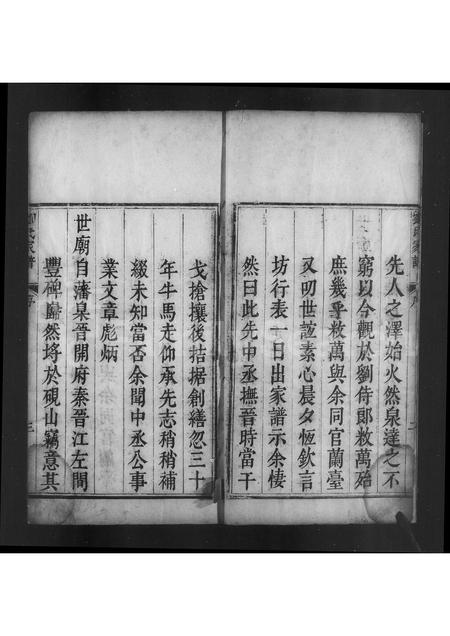 先人之澤始火然泉達之不
窮以今觀於劉侍郎敉萬殆
庶幾乎敉萬與余同官蘭臺
又叨世誼素心晨夕恆欽言
坊行表一日出家譜示余悽
然曰此先中丞撫晉時當干
戈搶攘後拮据創繕忽三十
年牛馬走仰承先志稍稍補
綴未知當否余聞中丞公事
業文章彪炳
世廟自藩臬晉開府秦晉江左間
豐碑巋然將於硯山竊意其
劉氏家譜 序 三